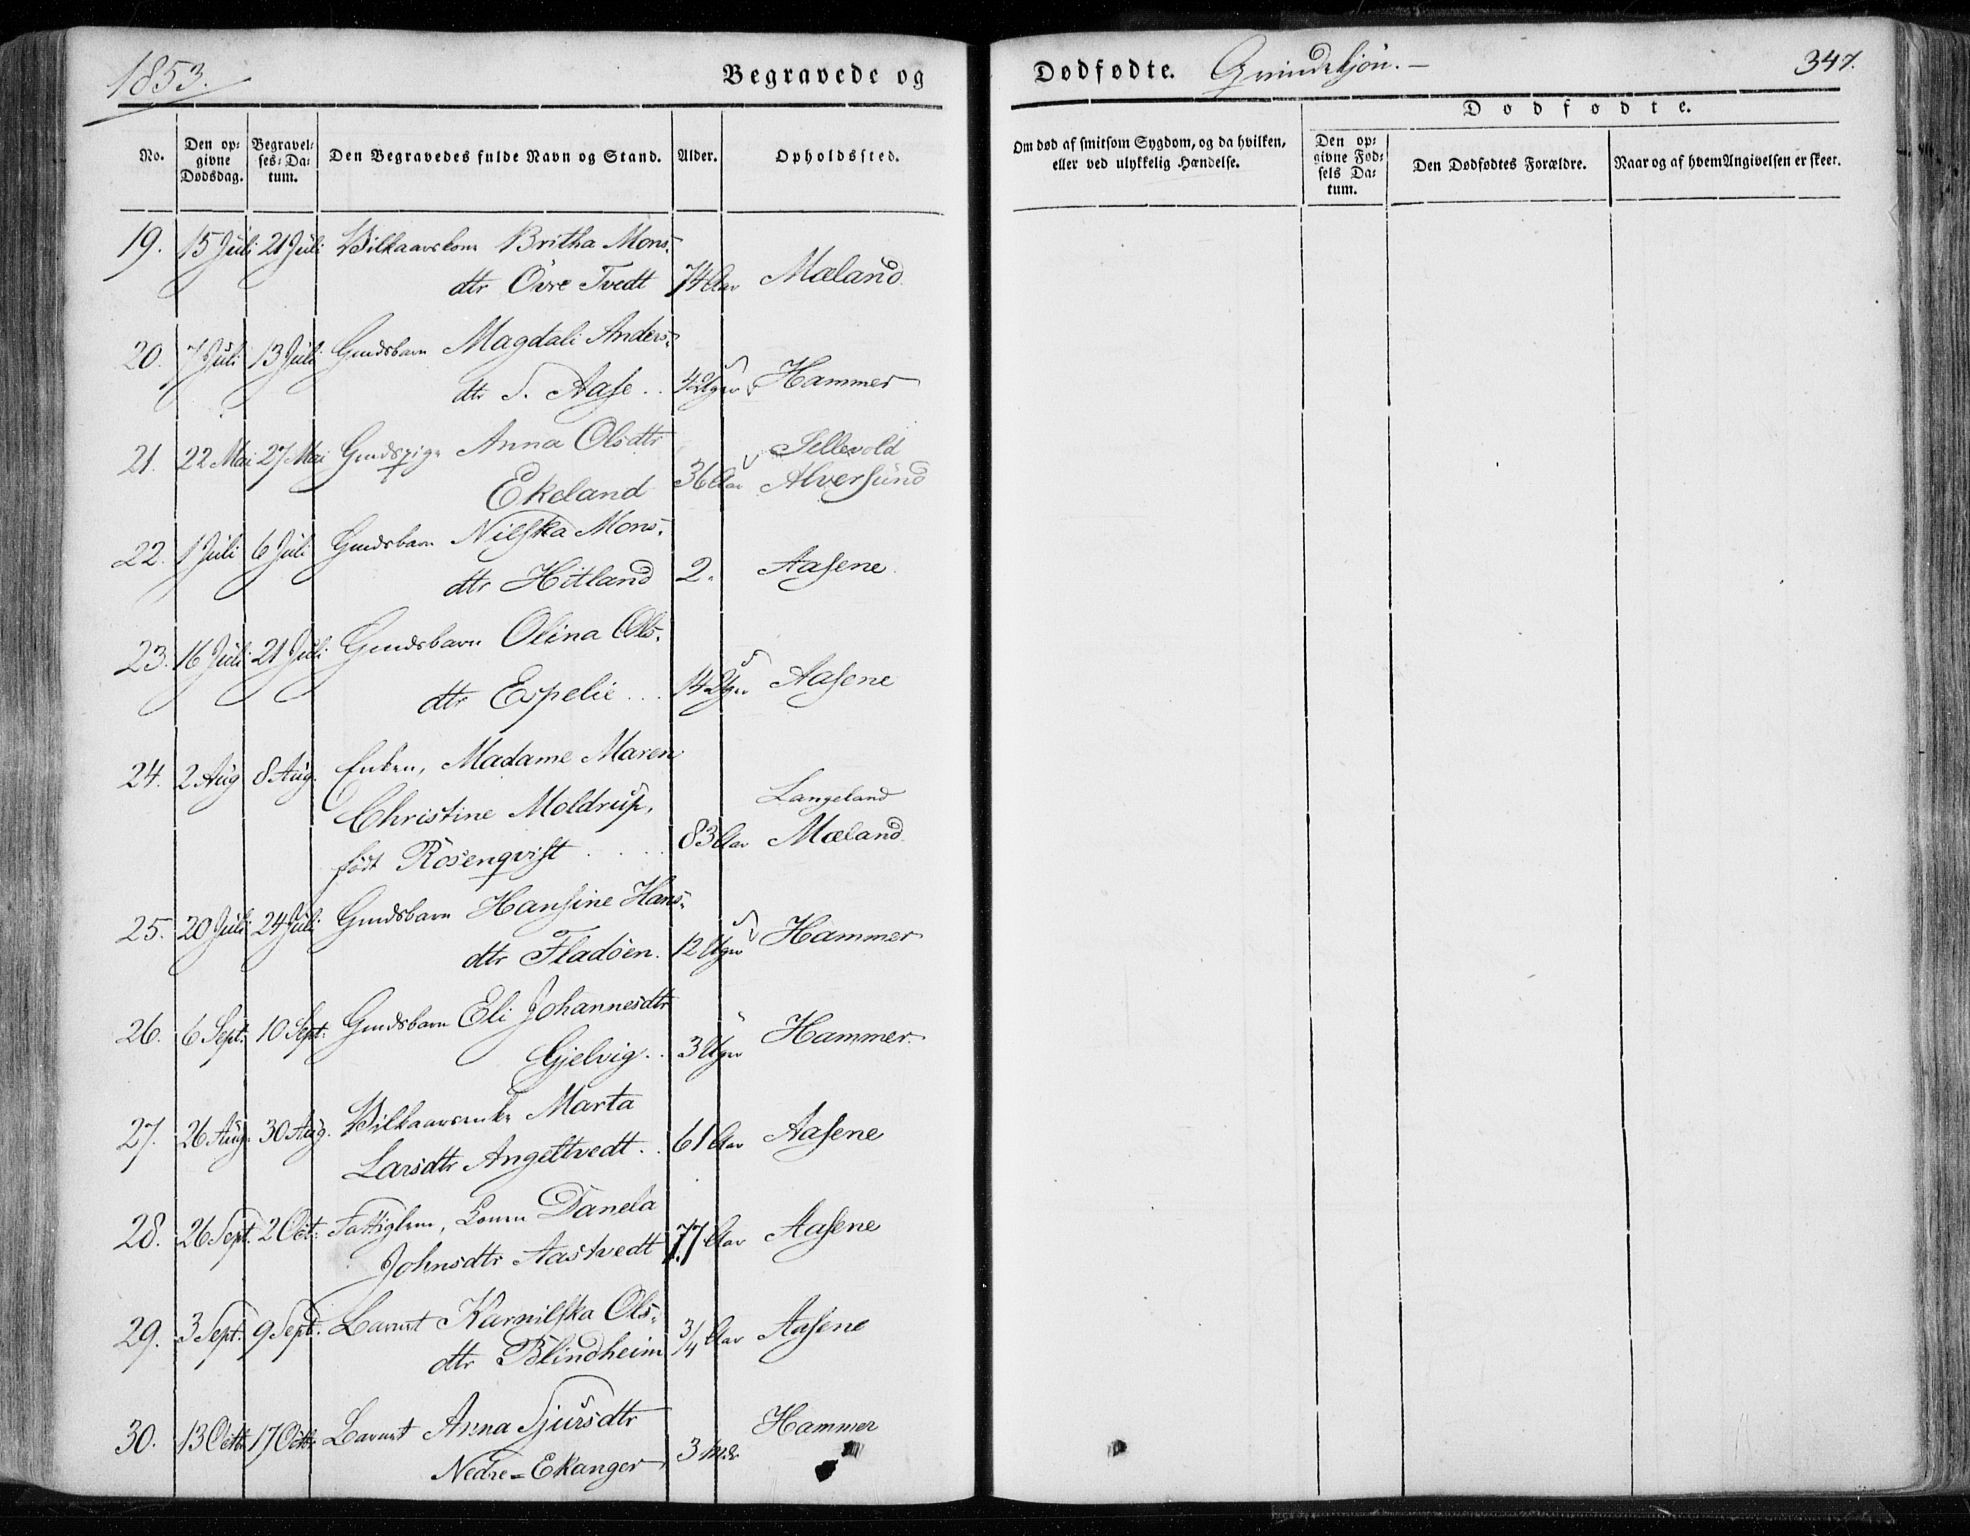 1853.
Begravede og
Dødfødte. Qvindekjön. —
347.
Dødfødte.
No.
Den op-
givne
Dødsdag.
Begravel-
ses-Da-
tum.
Den Begravedes fulde Navn og Stand.
Alder.
Opholdssted.
Om død af smitsom Sygdom, og da hvilken,
eller ved ulykkelig Hændelse.
Den op-
givne Fød-
sels Da-
tum.
Den Dødfødtes Forældre.
Naar og af hvem Angivelsen er skeet.
19. 15 Juli 21 Juli Vilkaarskone Britha Mons-
dtr Övre Tvedt 74 Aar Mæland.
20. 7 Juli 13 Juli Gmdsbarn Magdali Anders-
dtr S. Aase .. 4 Uger Hammer
21. 22 Mai 27 Mai Gmdspige Anna Olsdtr Sellevold
Ekeland 36 Aar Alversund
22. 1 Juli 6 Juli Gmdsbarn Nilska Mons-
dtr Hitland 2. Aasene.
23. 16 Juli 21 Juli Gmdsbarn Olina Ols-
dtr Espelie ... 14 Uger Aasene
24. 2 Aug 8 Aug. Enken, Madame Maren
Christine Moldrup, Langeland
født Rosenqvist .... 83 Aar Mæland.
25. 20 Juli 24 Juli Gmdsbarn Hansine Hans-
dtr Fladöen. 12 Uger Hammer
26. 6 Sept. 10 Sept. Gmdsbarn Eli Johannesdtr
Gjelvig .. 3 Uger Hammer.
27. 26 Aug. 30 Aug. Vilkaarsenke Marta
Larsdtr Angeltvedt .. 61 Aar Aasene
28. 26 Sept. 2 Oct. Fattiglem, Konen Danela
Johnsdtr Aastvedt 77 Aar Aasene
29. 3 Sept. 9 Sept. Barnet Karnilska Ols-
dtr Blindheim 3/4 Aar Aasene
30. 13 Octb 17 Octb Barnet Anna Sjursdtr
Nedre-Ekanger 3 Mdr Hammer